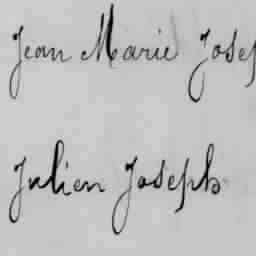 Jean Marie Josep
Julien Joseph